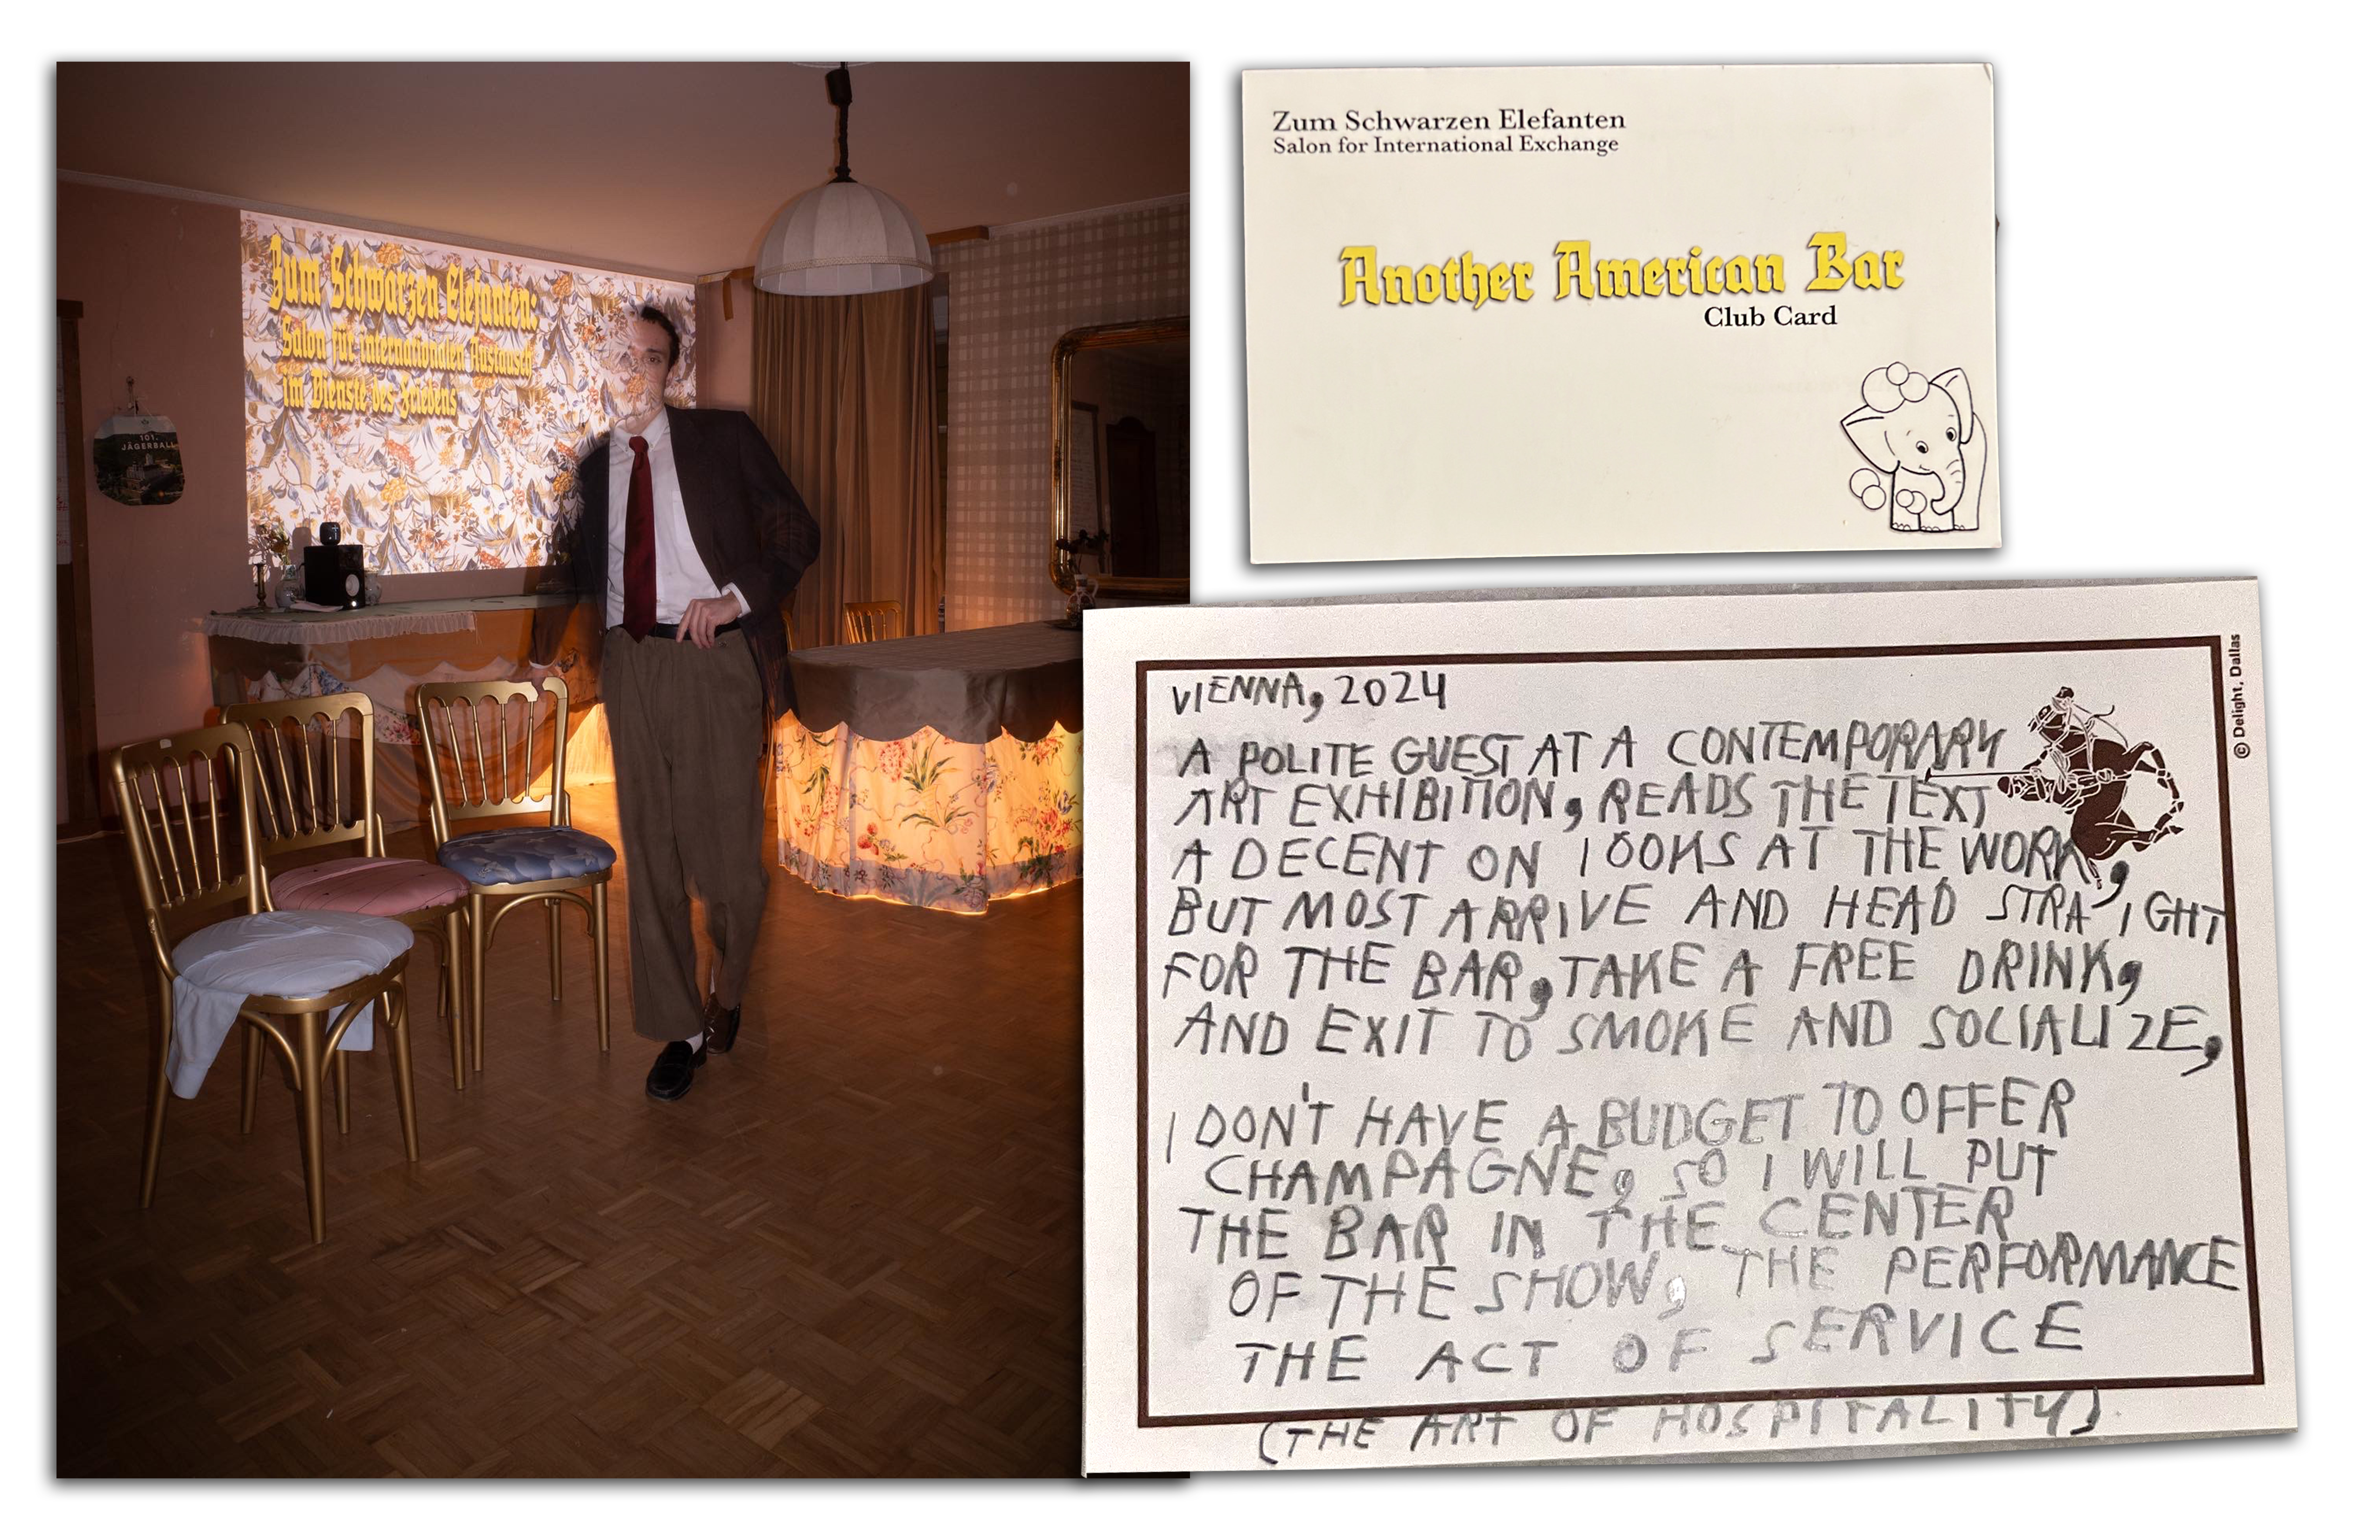 Zum Schwarzen Elefanten:
Salon für internationalen Austausch
im Dienste des Friedens
101.
JÄGERBALL
Zum Schwarzen Elefanten
Salon for International Exchange
Another American Bar
Club Card
© Delight, Dallas
VIENNA, 2024
A POLITE GUEST AT A CONTEMPORARY
ART EXHIBITION, READS THE TEXT
A DECENT ON LOOKS AT THE WORK,
BUT MOST ARRIVE AND HEAD STRAIGHT
FOR THE BAR, TAKE A FREE DRINK,
AND EXIT TO SMOKE AND SOCIALIZE,
I DON'T HAVE A BUDGET TO OFFER
CHAMPAGNE, SO I WILL PUT
THE BAR IN THE CENTER
OF THE SHOW, THE PERFORMANCE
THE ACT OF SERVICE
(THE ART OF HOSPITALITY)